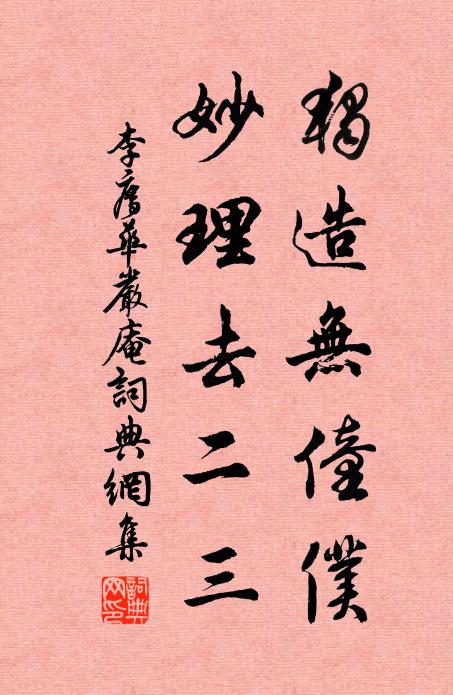 獨造無僮僕
妙理去二三
李廌華嚴庵詞典網集
詞典網印